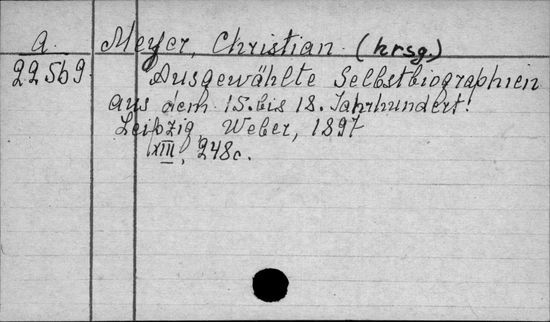 a. Meyer, Christian. (hrsg.)
22569. Ausgewählte Selbstbiographien
aus dem 15. bis 18. Jahrhundert.
Leipzig, Weber, 1897
XIII, 248c.